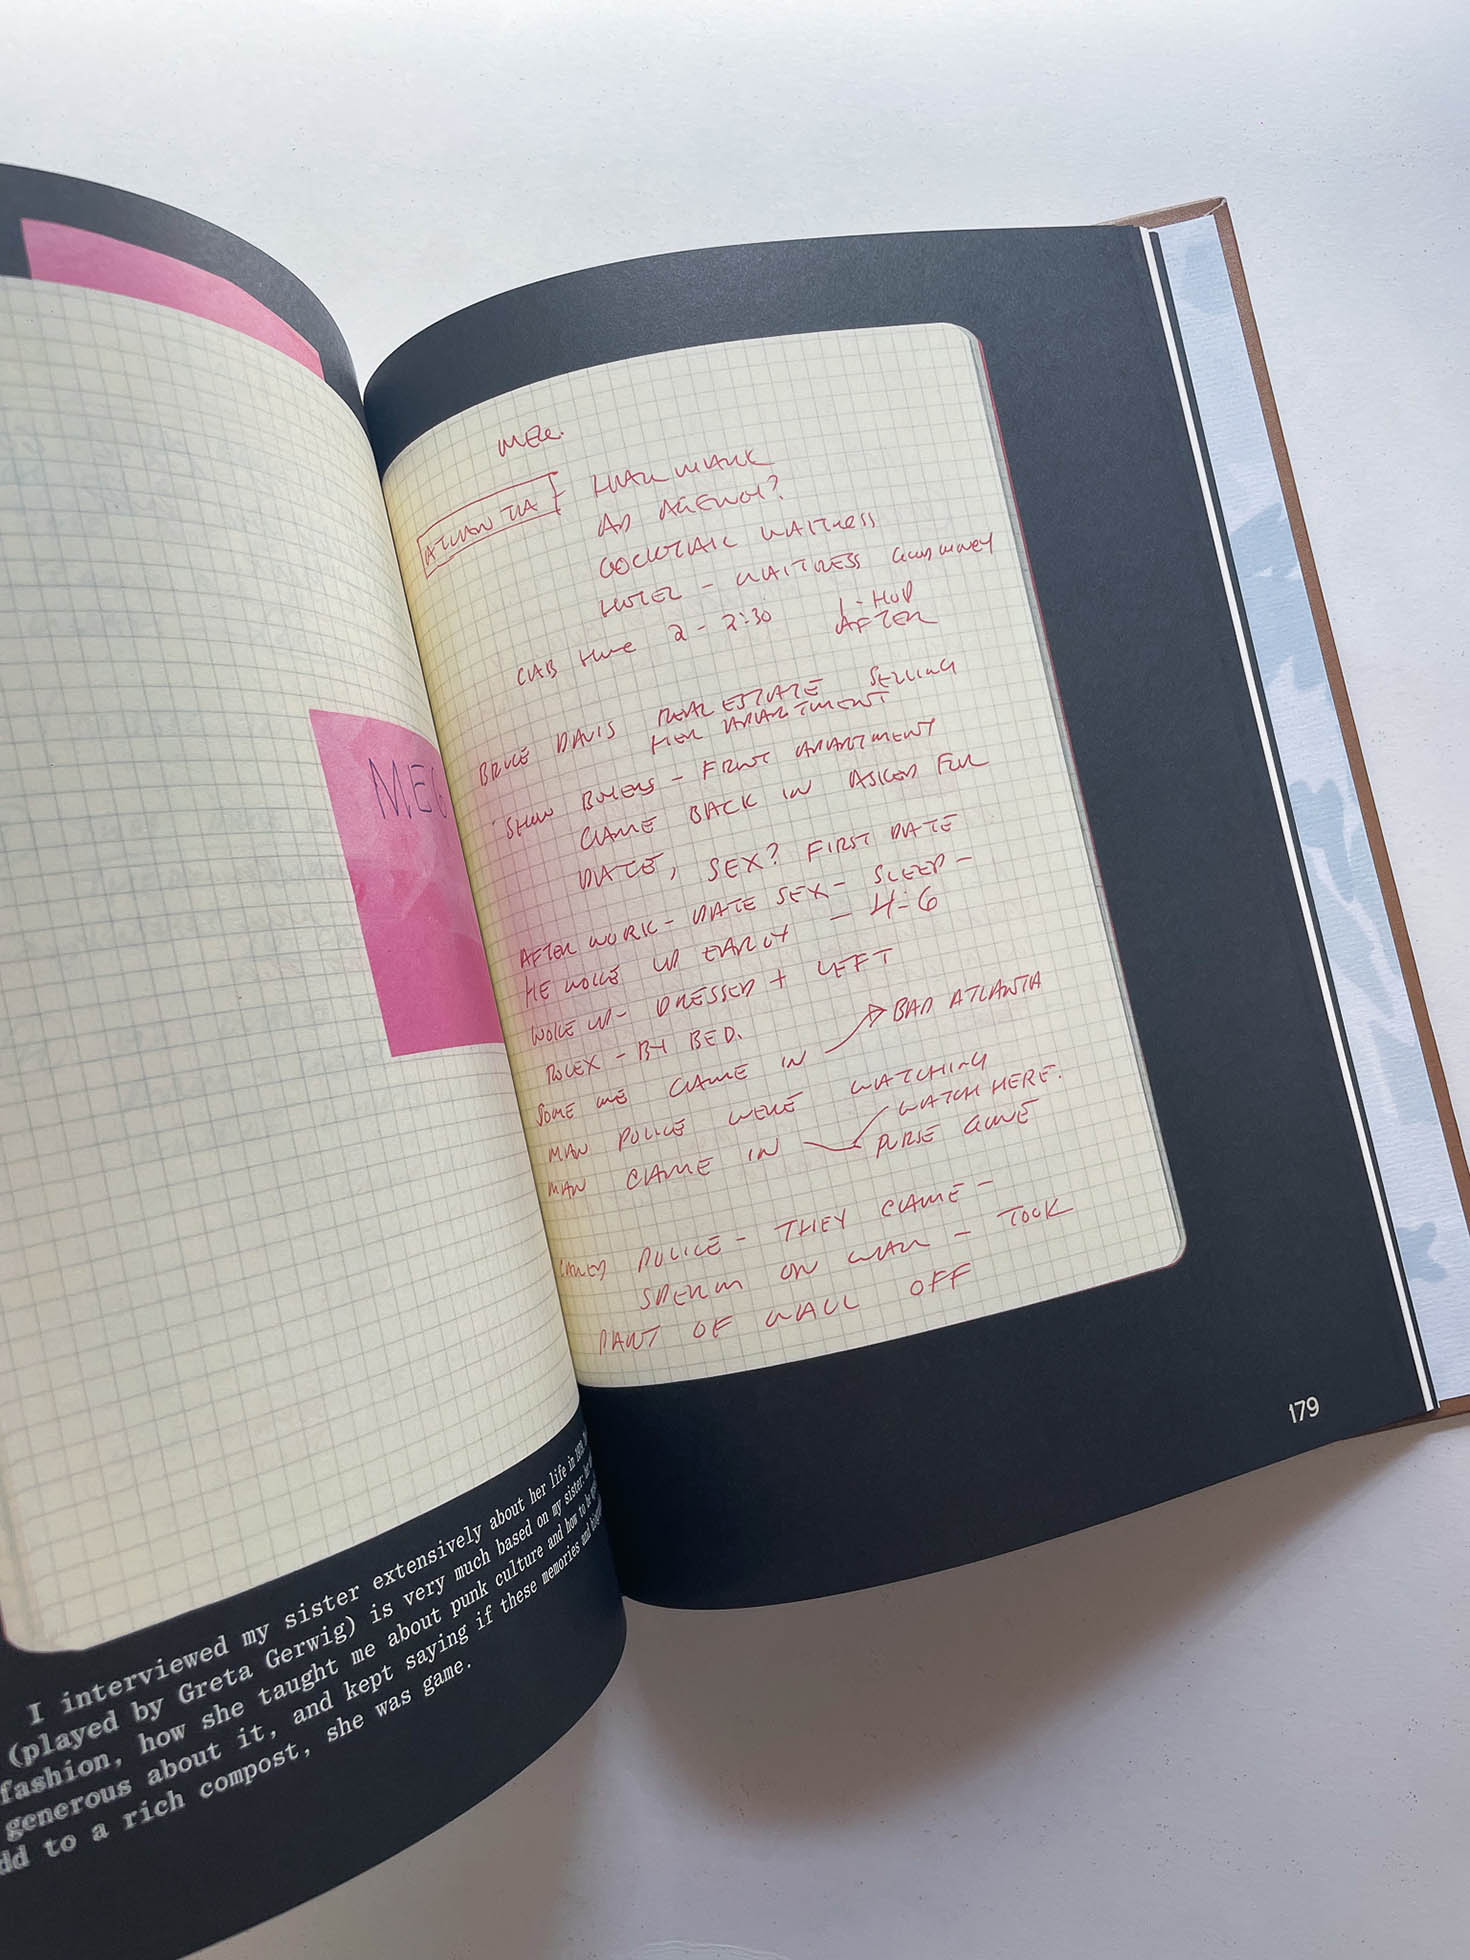 MEG
I interviewed my sister extensively about her life in
(played by Greta Gerwig) is very much based on my sister: her
fashion, how she taught me about punk culture and how to be
generous about it, and kept saying if these memories and
dd to a rich compost, she was game.
MEG.
ATLANTA
HALLMARK
AD AGENCY?
COCKTAIL WAITRESS
HOTEL - WAITRESS GOOD MONEY
CAB HOME 2 - 2:30
AFTER
BRUCE DAVIS REAL ESTATE SELLING
HER APARTMENT
SHOW BUYERS - FRONT APARTMENT
CAME BACK IN ASKED FOR
DATE, SEX? FIRST DATE
AFTER WORK - DATE SEX - SLEEP -
HE WOKE UP EARLY - 4-6
WOKE UP - DRESSED + LEFT
ROLEX - BY BED.
SOME ONE CAME IN BAD ATLANTA
MAN POLICE WERE WATCHING
MAN CAME IN WATCH HERE.
PURSE GONE
CALLED POLICE - THEY CAME -
SPERM ON WALL - TOOK
PART OF WALL OFF
179